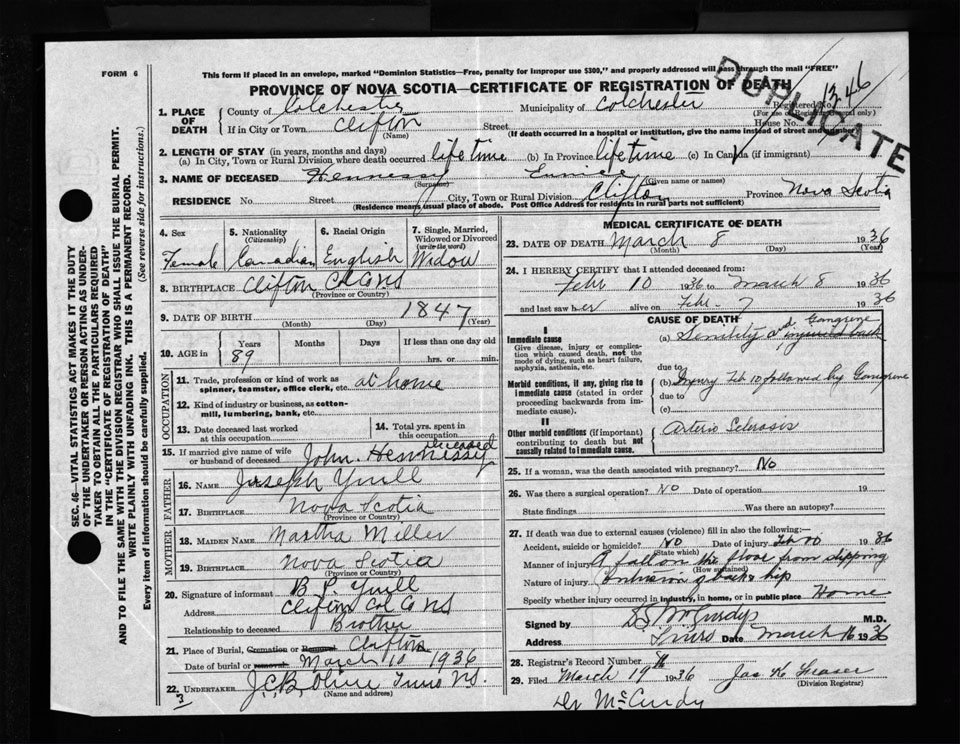 FORM 6
This form if placed in an envelope, marked "Dominion Statistics—Free, penalty for improper use $300," and properly addressed will pass through the mail "FREE"
PROVINCE OF NOVA SCOTIA—CERTIFICATE OF REGISTRATION OF DEATH
DUPLICATE
1. PLACE OF DEATH
County of Colchester Municipality of Colchester Registered No. 1346
(For use of Registrar General only)
If in City or Town Clifton Street House No.
(Name) (If death occurred in a hospital or institution, give the name instead of street and number)
2. LENGTH OF STAY (in years, months and days)
(a) In City, Town or Rural Division where death occurred life time (b) In Province life time (c) In Canada (if immigrant)
3. NAME OF DECEASED Hennessy Eunice
(Surname) (Given name or names)
RESIDENCE No. Street City, Town or Rural Division Clifton Province Nova Scotia
(Residence means usual place of abode. Post Office Address for residents in rural parts not sufficient)
4. Sex Female
5. Nationality (Citizenship) Canadian
6. Racial Origin English
7. Single, Married, Widowed or Divorced (write the word) Widow
8. BIRTHPLACE Clifton Col Co NS
(Province or Country)
9. DATE OF BIRTH 1847
(Month) (Day) (Year)
10. AGE in Years Months Days If less than one day old
89 hrs. or min.
OCCUPATION
11. Trade, profession or kind of work as spinner, teamster, office clerk, etc. at home
12. Kind of industry or business, as cotton-mill, lumbering, bank, etc.
13. Date deceased last worked at this occupation
14. Total yrs. spent in this occupation
15. If married give name of wife or husband of deceased John Hennessy deceased
FATHER
16. NAME Joseph Yuill
17. BIRTHPLACE Nova Scotia
(Province or Country)
MOTHER
18. MAIDEN NAME Martha Miller
19. BIRTHPLACE Nova Scotia
(Province or Country)
20. Signature of informant B. P. Yuill
Address Clifton Col Co NS
Relationship to deceased Brother
21. Place of Burial, Cremation or Removal Clifton
Date of burial or removal March 10 1936
22. UNDERTAKER Truro NS.
(Name and address)
3
MEDICAL CERTIFICATE OF DEATH
23. DATE OF DEATH March 8 1936
(Month) (Day) (Year)
24. I HEREBY CERTIFY that I attended deceased from:
Febr 10 1936 to March 8 1936
and last saw her alive on Febr. 7 1936
CAUSE OF DEATH
I
Immediate cause
Give disease, injury or complication which caused death, not the mode of dying, such as heart failure, asphyxia, asthenia, etc.
(a) Senility and Gangrene injured back
due to
Morbid conditions, if any, giving rise to immediate cause (stated in order proceeding backwards from immediate cause).
(b) Injury Feb 10 followed by Gangrene
due to
(c)
II
Other morbid conditions (if important) contributing to death but not causally related to immediate cause.
Arterio Sclerosis
25. If a woman, was the death associated with pregnancy? No
26. Was there a surgical operation? No Date of operation 19
State findings Was there an autopsy?
27. If death was due to external causes (violence) fill in also the following:—
Accident, suicide or homicide? No Date of injury Feb 10 1936
(State which)
Manner of injury A fall on the floor from slipping
(How sustained)
Nature of injury Contusion back & hip
Specify whether injury occurred in industry, in home, or in public place Home
Signed by McCurdy M.D.
Address Truro Date March 16 1936
28. Registrar's Record Number
29. Filed March 19 1936 Jas Fraser
(Division Registrar)
Dr McCurdy
SEC. 46—VITAL STATISTICS ACT MAKES IT THE DUTY OF THE UNDERTAKER OR PERSON ACTING AS UNDERTAKER TO OBTAIN ALL THE PARTICULARS REQUIRED IN THE "CERTIFICATE OF REGISTRATION OF DEATH"
AND TO FILE THE SAME WITH THE DIVISION REGISTRAR WHO SHALL ISSUE THE BURIAL PERMIT.
WRITE PLAINLY WITH UNFADING INK. THIS IS A PERMANENT RECORD.
Every item of information should be carefully supplied. (See reverse side for instructions.)